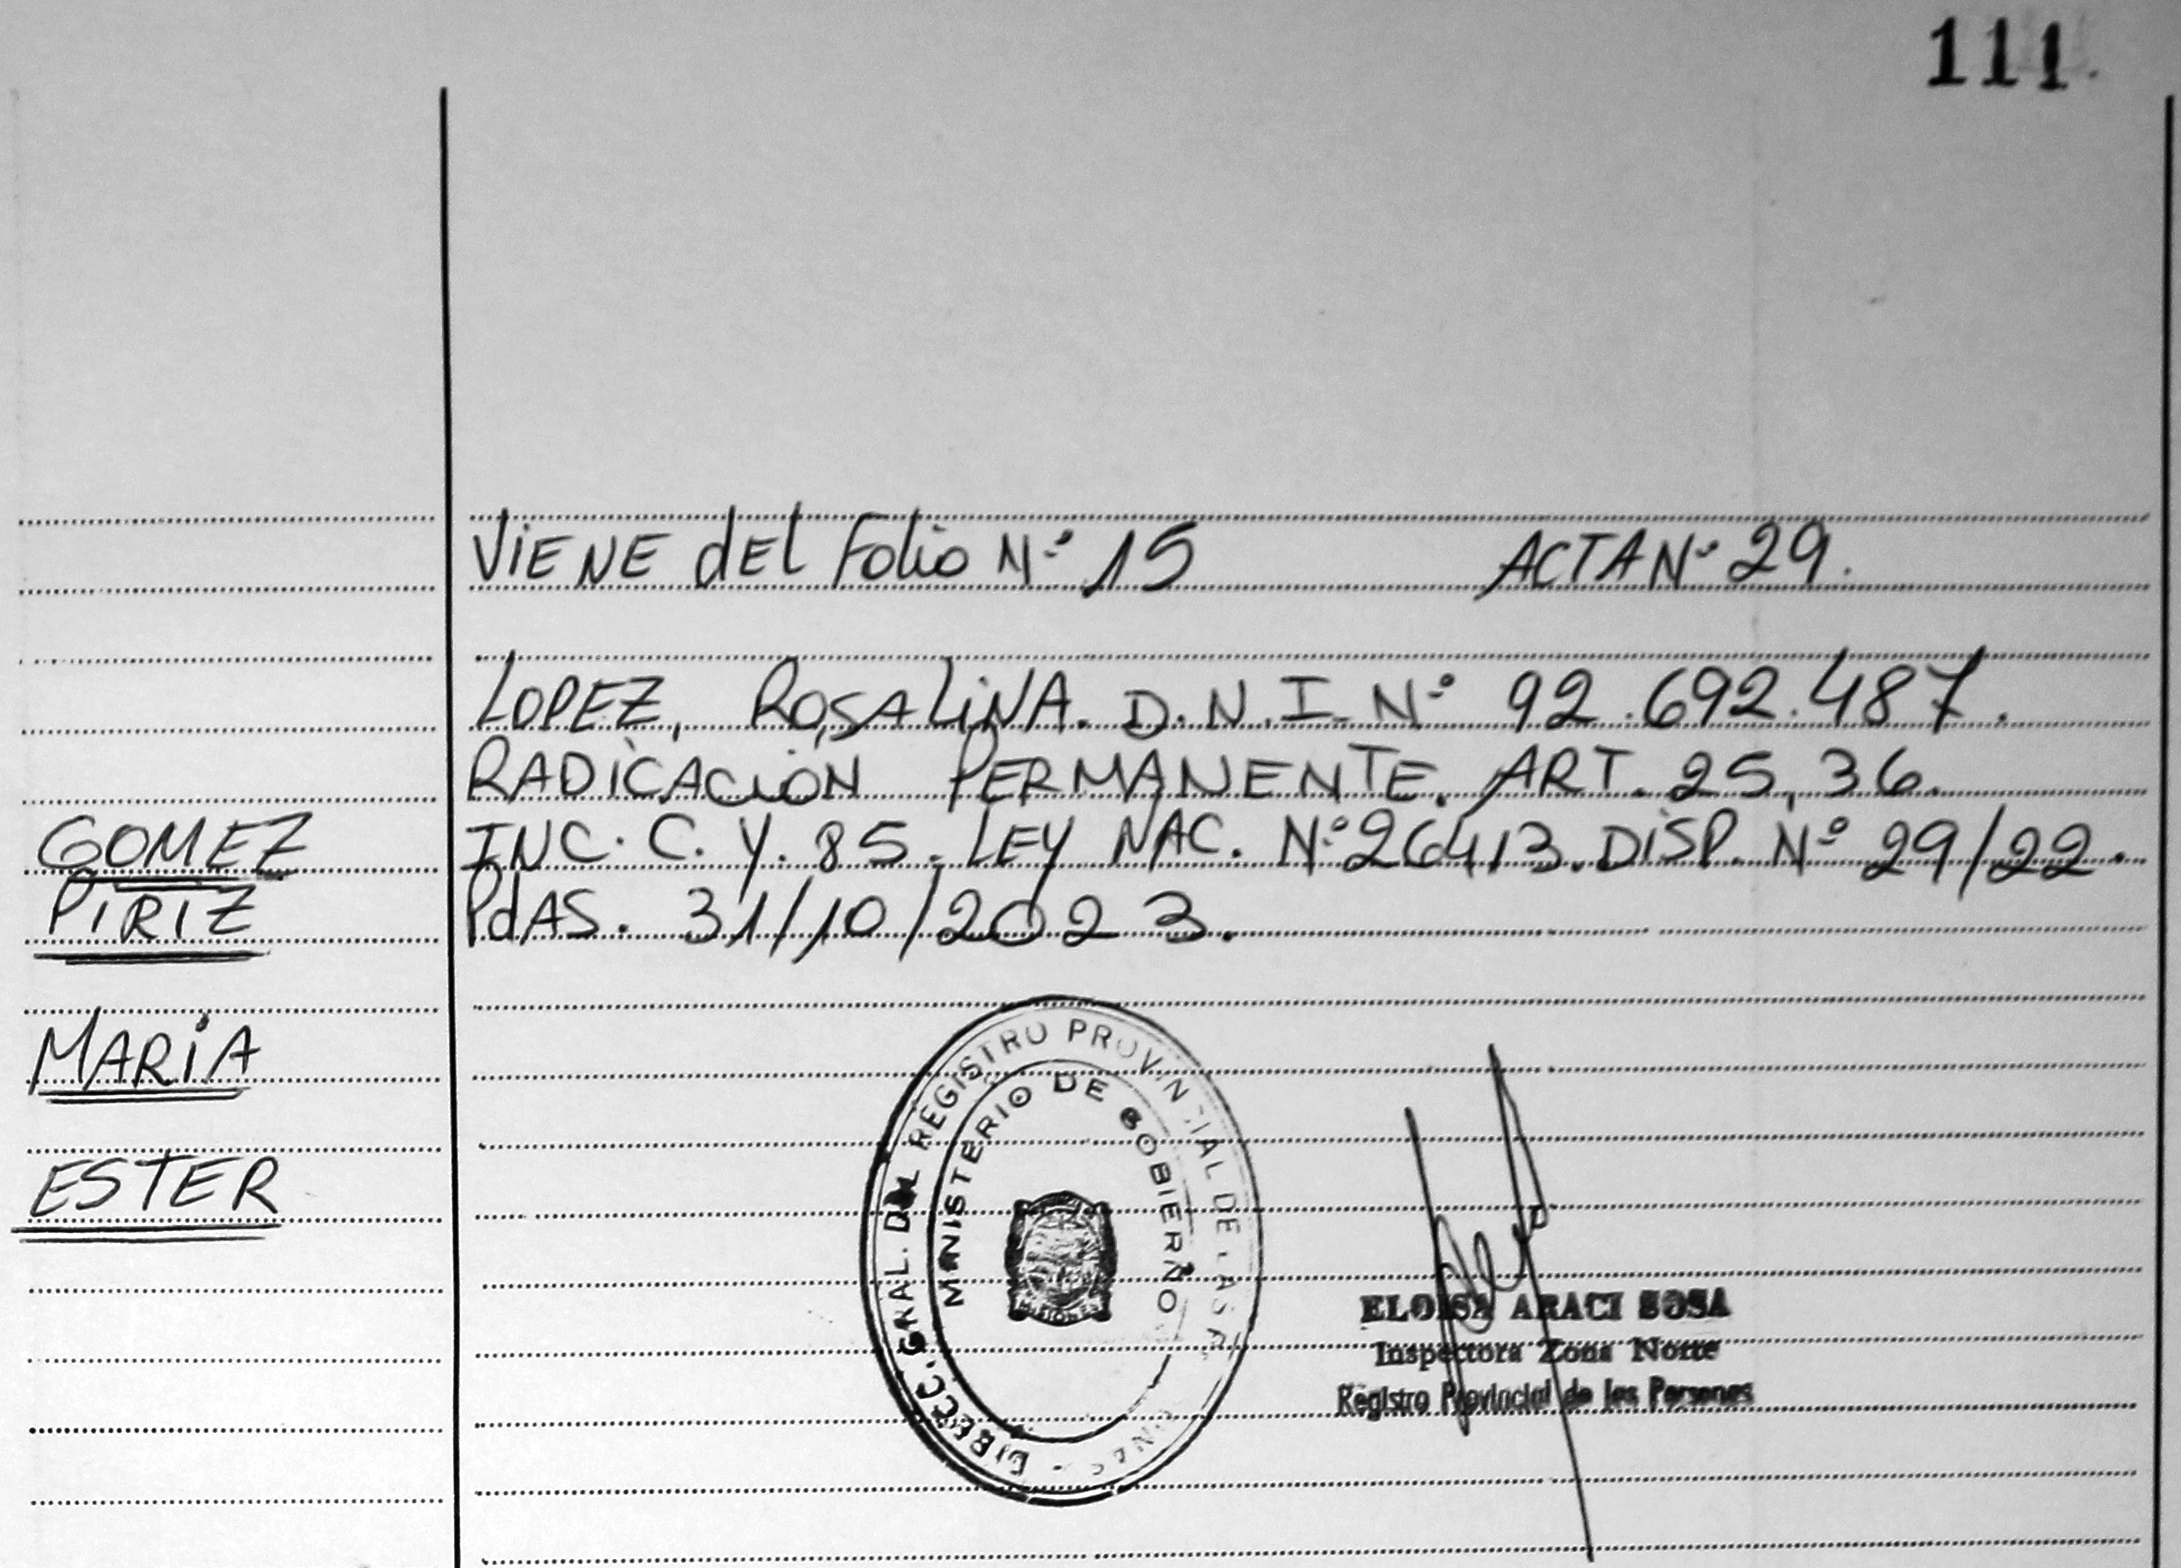 111
ViENE dEl Folio Nº 15 ACTA Nº 29.
LOPEZ, ROSALiNA. D.N.I. Nº 92.692.487.
RADiCACiÓN PERMANENTE. ART. 25, 36.
INC. C. Y. 85. LEY NAC. Nº 26413. DiSP. Nº 29/22.
PdAS. 31/10/2023.
GOMEZ
PiRIZ
MARÍA
ESTER
DIRECC. GRAL. DEL REGISTRO PROVINCIAL DE LAS
MINISTERIO DE GOBIERNO
ELOISA ARACI SOSA
Inspectora Zona Norte
Registro Provincial de las Personas